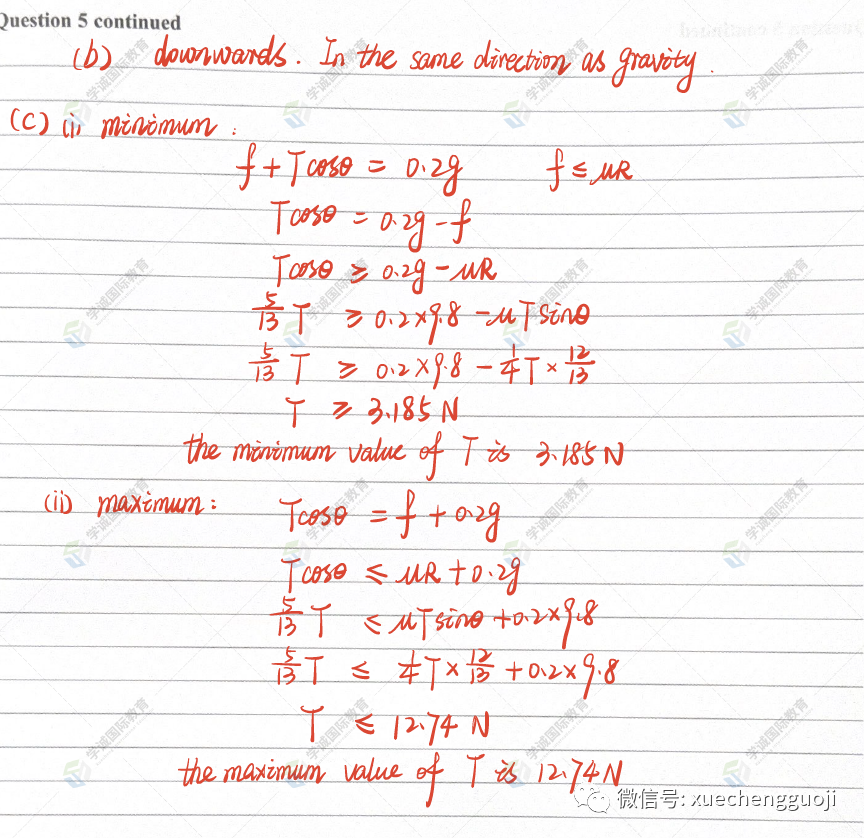 Question 5 continued
(b) downwards. In the same direction as gravity.
(C) (i) minimum:
f + Tcosθ = 0.2g f ≤ μR
Tcosθ = 0.2g - f
Tcosθ ≥ 0.2g - μR
5/13 T ≥ 0.2×9.8 - μTsinθ
5/13 T ≥ 0.2×9.8 - 1/4 T × 12/13
T ≥ 3.185 N
the minimum value of T is 3.185 N
(ii) maximum:
Tcosθ = f + 0.2g
Tcosθ ≤ μR + 0.2g
5/13 T ≤ μTsinθ + 0.2×9.8
5/13 T ≤ 1/4 T × 12/13 + 0.2×9.8
T ≤ 12.74 N
the maximum value of T is 12.74 N
微信号: xuechengguoji
学诚国际教育